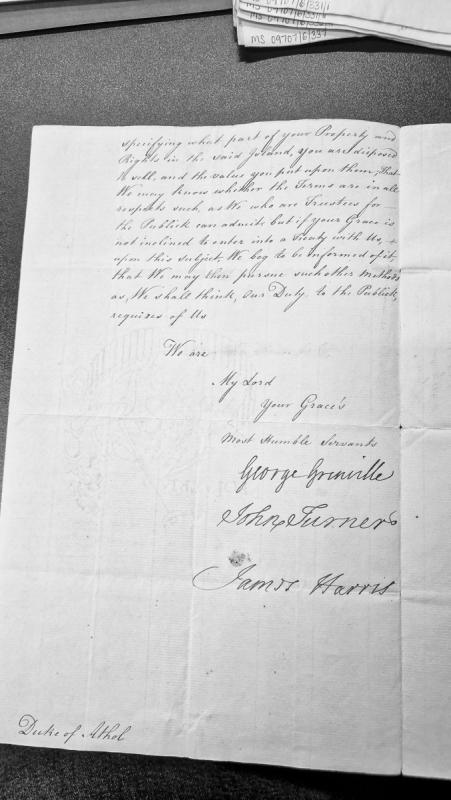 MS 09707/6/33/1
MS 09707/6/33/
MS 09707/6/33/
specifying what part of your Property and
Rights in the said Island, you are disposed
to sell, and the value you put upon them; that
We may know whether the Terms are in all
respects such, as We who are Trustees for
the Publick can admit: but if your Grace is
not inclined to enter into a Treaty with Us,
upon this subject, We beg to be informed of it,
that We may then pursue such other Methods
as, We shall think, Our Duty to the Publick,
requires of Us
We are
My Lord
Your Grace's
Most Humble Servants
George Grenville
John Turner
James Harris
Duke of Athol